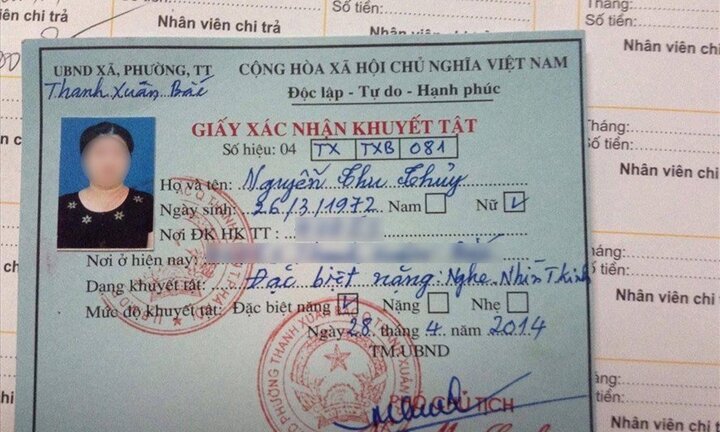 ên chi trả
Nhân viên chi trả
Số tiền:
Nhân viên chi
Số tiền:
Nhân viên
UBND XÃ, PHƯỜNG, TT
Thanh Xuân Bắc
CỘNG HÒA XÃ HỘI CHỦ NGHĨA VIỆT NAM
Độc lập - Tự do - Hạnh phúc
GIẤY XÁC NHẬN KHUYẾT TẬT
Số hiệu: 04 TX TXB 081
Họ và tên: Nguyễn Thu Thủy
Ngày sinh: 26/3/1972 Nam Nữ
Nơi ĐK HK TT :
Nơi ở hiện nay:
Dạng khuyết tật: Đặc biệt nặng: Nghe Nhìn Thkinh
Mức độ khuyết tật: Đặc biệt nặng Nặng Nhẹ
Ngày 28 tháng 4 năm 2014
TM.UBND
PHÓ CHỦ TỊCH
Tháng:
Số tiền:
Nhân viên chi
Tháng:
Số tiền:
Nhân viên chi
áng:
tiền:
Nhân viên chi